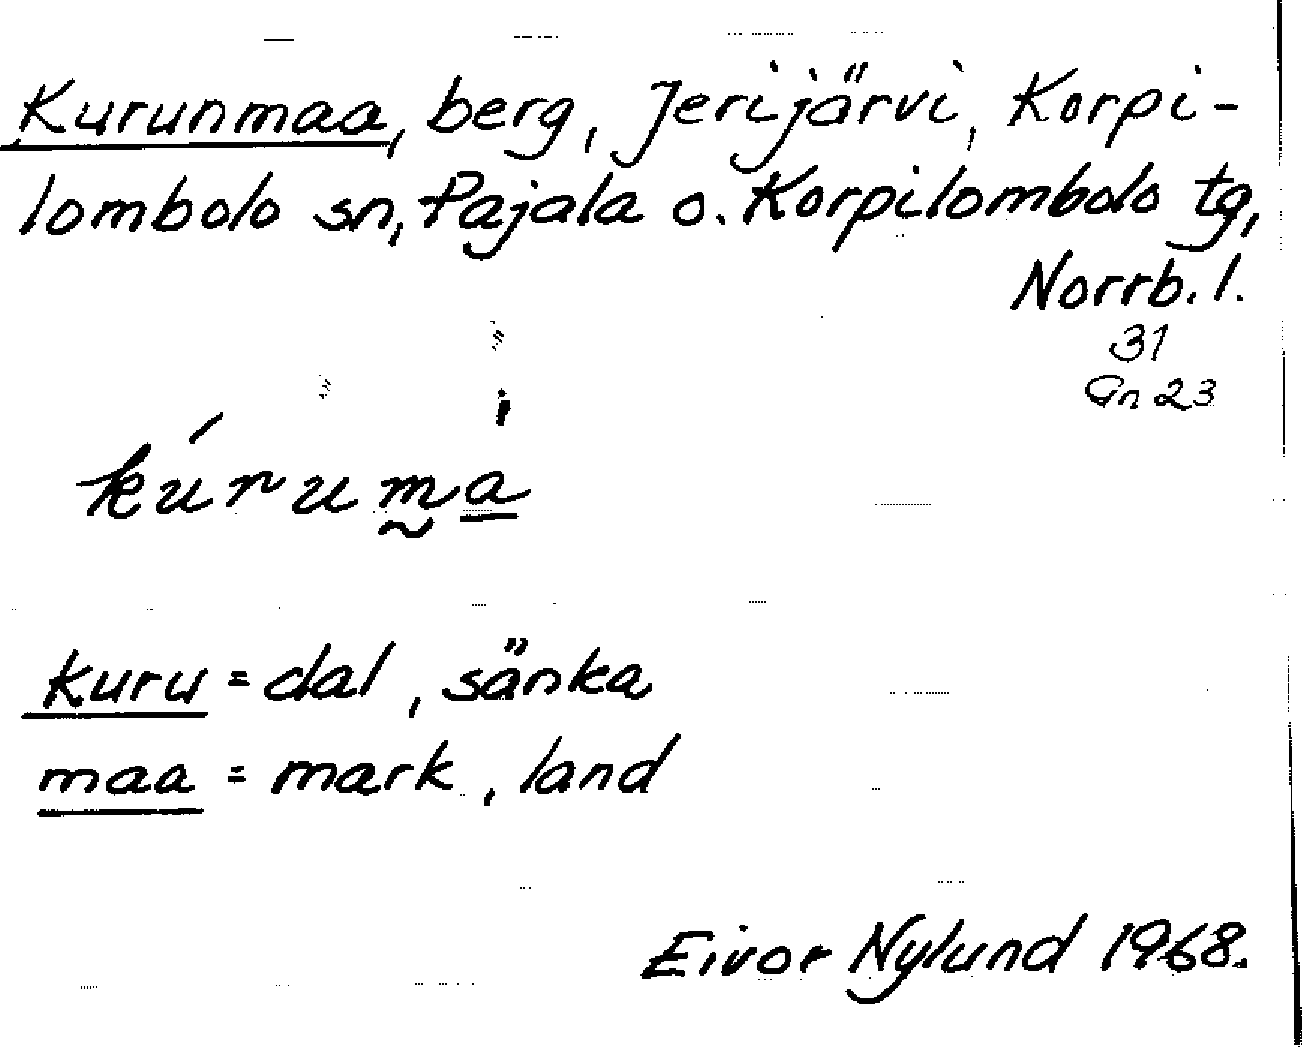 Kurunmaa, berg, Jerijärvi, Korpi-
lombolo sn, Pajala o. Korpilombolo tg,
Norrb. l.
31
Gn 23
kúruma̰
kuru = dal, sänka
maa = mark, land
Eivor Nylund 1968.